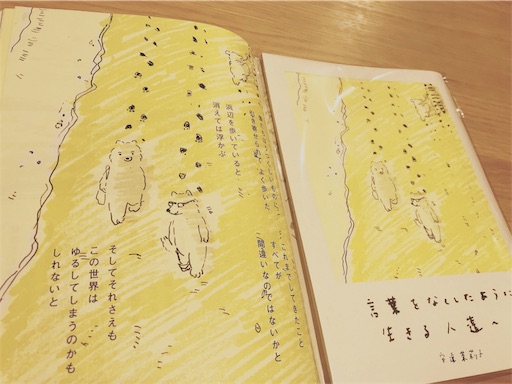 よく歩いた
浜辺を歩いていると
消えては浮かぶ
これまでしてきたこと
すべてが
間違いなのではないかと
そしてそれさえも
この世界は
ゆるしてしまうのかも
しれないと
言葉をなくしたように
生きる人達へ
安達茉莉子